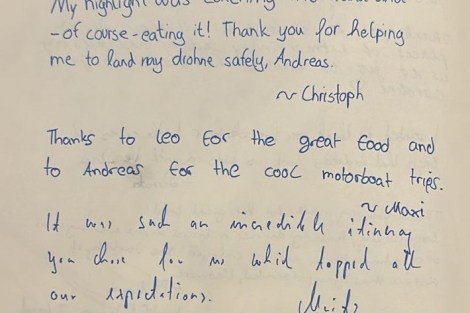 My highlight was
- of course - eating it! Thank you for helping
me to land my drohne safely, Andreas.
~ Christoph
Thanks to Leo for the great food and
to Andreas for the cool motorboat trips.
~ Maxi
It was such an incredible itinnay
you chose for us which topped all
our expectations.